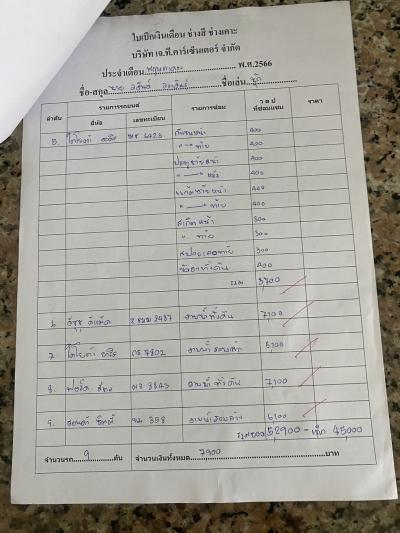 ใบเบิกเงินเดือน ช่างสี ช่างเคาะ
บริษัท เจ.ที.คาร์เซ็นเตอร์ จำกัด
ประจำเดือน พฤษภาคม พ.ศ.2566
ชื่อ-สกุล นาย ชื่อเล่น
ลำดับ รายการรถยนต์ รายการซ่อม ว ด ป ที่ซ่อมแซม ราคา
ยี่ห้อ เลขทะเบียน
5. โตโยต้า 6423 กันชนหน้า 400
" ท้าย 400
ประตูซ้ายหน้า 400
" หลัง 400
แก้มซ้ายหน้า 400
" ท้าย 400
สเกิตหน้า 300
" ท้าย 300
สปอยเลอท้าย 300
ขัดสีทั้งคัน 400
รวม 3,700
6. อีซูซุ ดีแม็ค 3487 งานน้ำทั้งคัน 7,100
7. โตโยต้า 7802 งานน้ำรอบล่าง 6,100
8. ฟอร์ด 3843 งานน้ำทั้งคัน 7,100
9. ฮอนด้า ซิตี้ 358 งานน้ำรอบล่าง 6,100
52,900 - 45,000
จำนวนรถ 9 คัน จำนวนเงินทั้งหมด 7900 บาท